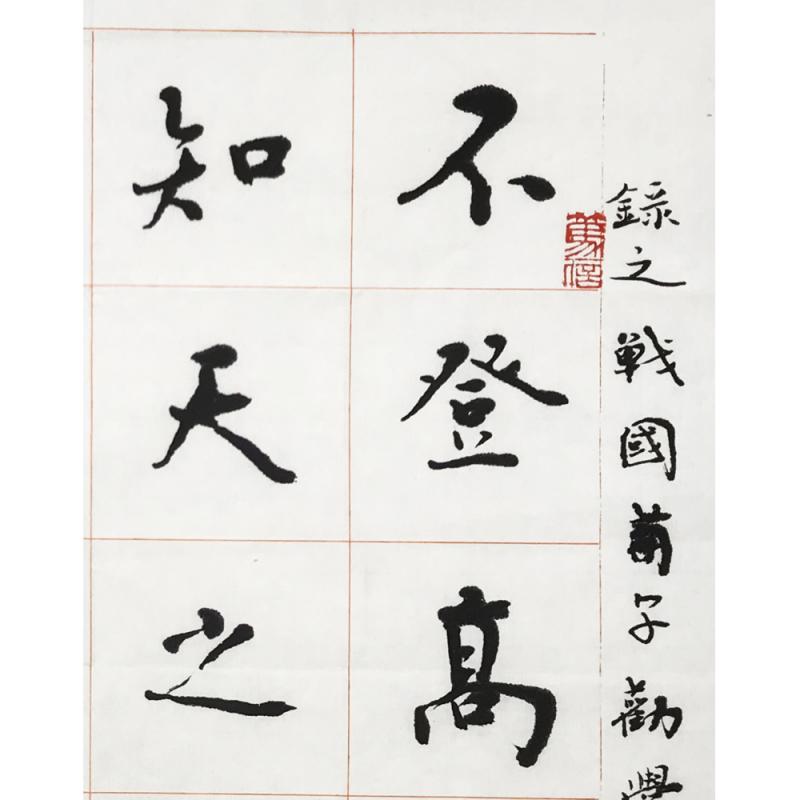 錄之戰國荀子勸學
不登髙
知天之